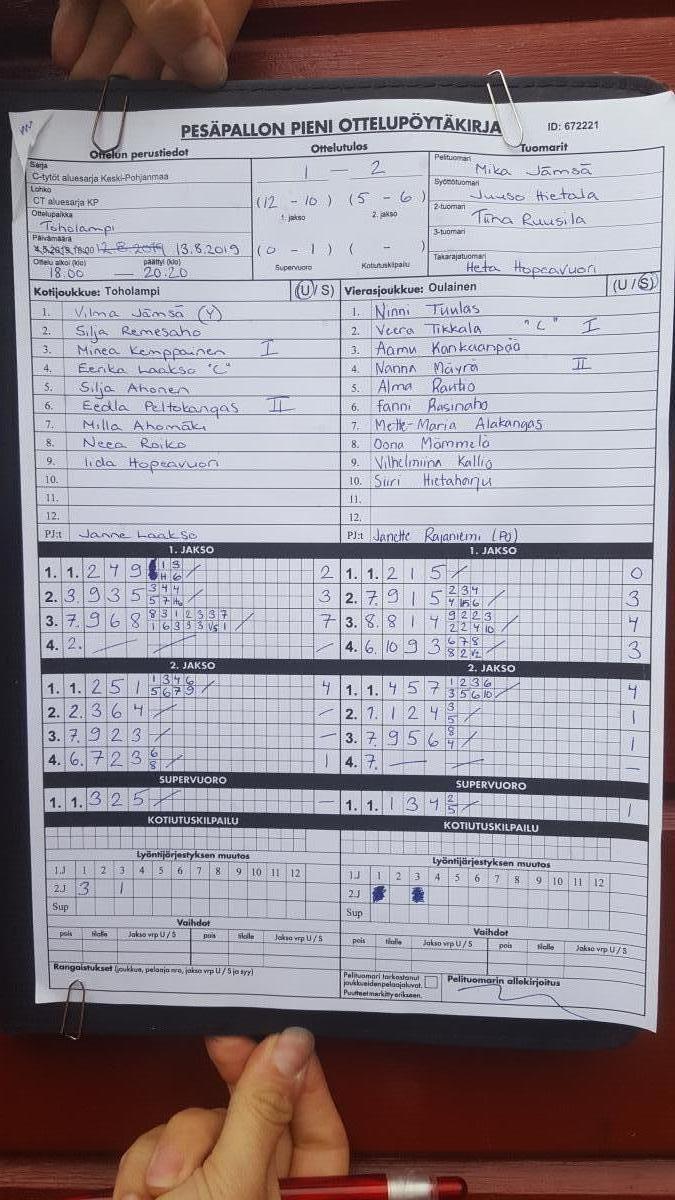 PESÄPALLON PIENI OTTELUPÖYTÄKIRJA ID: 672221
Ottelun perustiedot Ottelutulos Tuomarit
Sarja
C-tytöt aluesarja Keski-Pohjanmaa
Lohko
CT aluesarja KP
Ottelupaikka
Toholampi
Päivämäärä
12.8.2019 13.8.2019
Ottelu alkoi (klo) päättyi (klo)
18.00 — 20.20
1 — 2
(12 - 10) (5 - 6)
1. jakso 2. jakso
(0 - 1) ( - )
Supervuoro Kotiutuskilpailu
Pelituomari
Mika Jämsä
Syöttötuomari
Juuso Hietala
2-tuomari
Tiina Ruusila
3-tuomari
Takarajatuomari
Heta Hopeavuori
Kotijoukkue: Toholampi (U/S)
1. Vilma Jämsä (Y)
2. Silja Remesaho
3. Minea Kemppainen I
4. Eerika Laakso "C"
5. Silja Ahonen
6. Eedla Peltokangas II
7. Milla Ahomäki
8. Neea Roiko
9. Iida Hopeavuori
10.
11.
12.
PJ:t Janne Laakso
Vierasjoukkue: Oulainen (U/S)
1. Ninni Tuulas
2. Veera Tikkala "C" I
3. Aamu Kankaanpää
4. Nanna Mäyrä II
5. Alma Rautio
6. Fanni Rasinaho
7. Mette-Maria Alakangas
8. Oona Mömmelä
9. Vilhelmiina Kallio
10. Siiri Hietaharju
11.
12.
PJ:t Janette Rajaniemi (PJ)
1. JAKSO
1. 1. 2 4 9 2
2. 3. 9 3 5 3
3. 7. 9 6 8 7
4. 2. — — —
2. JAKSO
1. 1. 2 5 1 4
2. 2. 3 6 4 —
3. 7. 9 2 3 —
4. 6. 7 2 3 6 8 1
SUPERVUORO
1. 1. 3 2 5 —
KOTIUTUSKILPAILU
1. JAKSO
1. 1. 2 1 5 0
2. 7. 9 1 5 3
3. 8. 8 1 4 4
4. 6. 10 9 3 3
2. JAKSO
1. 1. 4 5 7 4
2. 1. 1 2 4 3 5 1
3. 7. 9 5 6 8 4 1
4. 7. — — —
SUPERVUORO
1. 1. 1 3 4 2 5 1
KOTIUTUSKILPAILU
Lyöntijärjestyksen muutos
1.J 1 2 3 4 5 6 7 8 9 10 11 12
2.J 3 1
Sup
Vaihdot
pois tilalle Jakso vrp U / S pois tilalle Jakso vrp U / S
Rangaistukset (joukkue, pelaaja nro, jakso vrp U / S ja syy)
Lyöntijärjestyksen muutos
1.J 1 2 3 4 5 6 7 8 9 10 11 12
2.J
Sup
Vaihdot
pois tilalle Jakso vrp U / S pois tilalle Jakso vrp U / S
Pelituomari tarkastanut
joukkueiden pelaajaluvat.
Puutteet merkitty erikseen.
Pelituomarin allekirjoitus